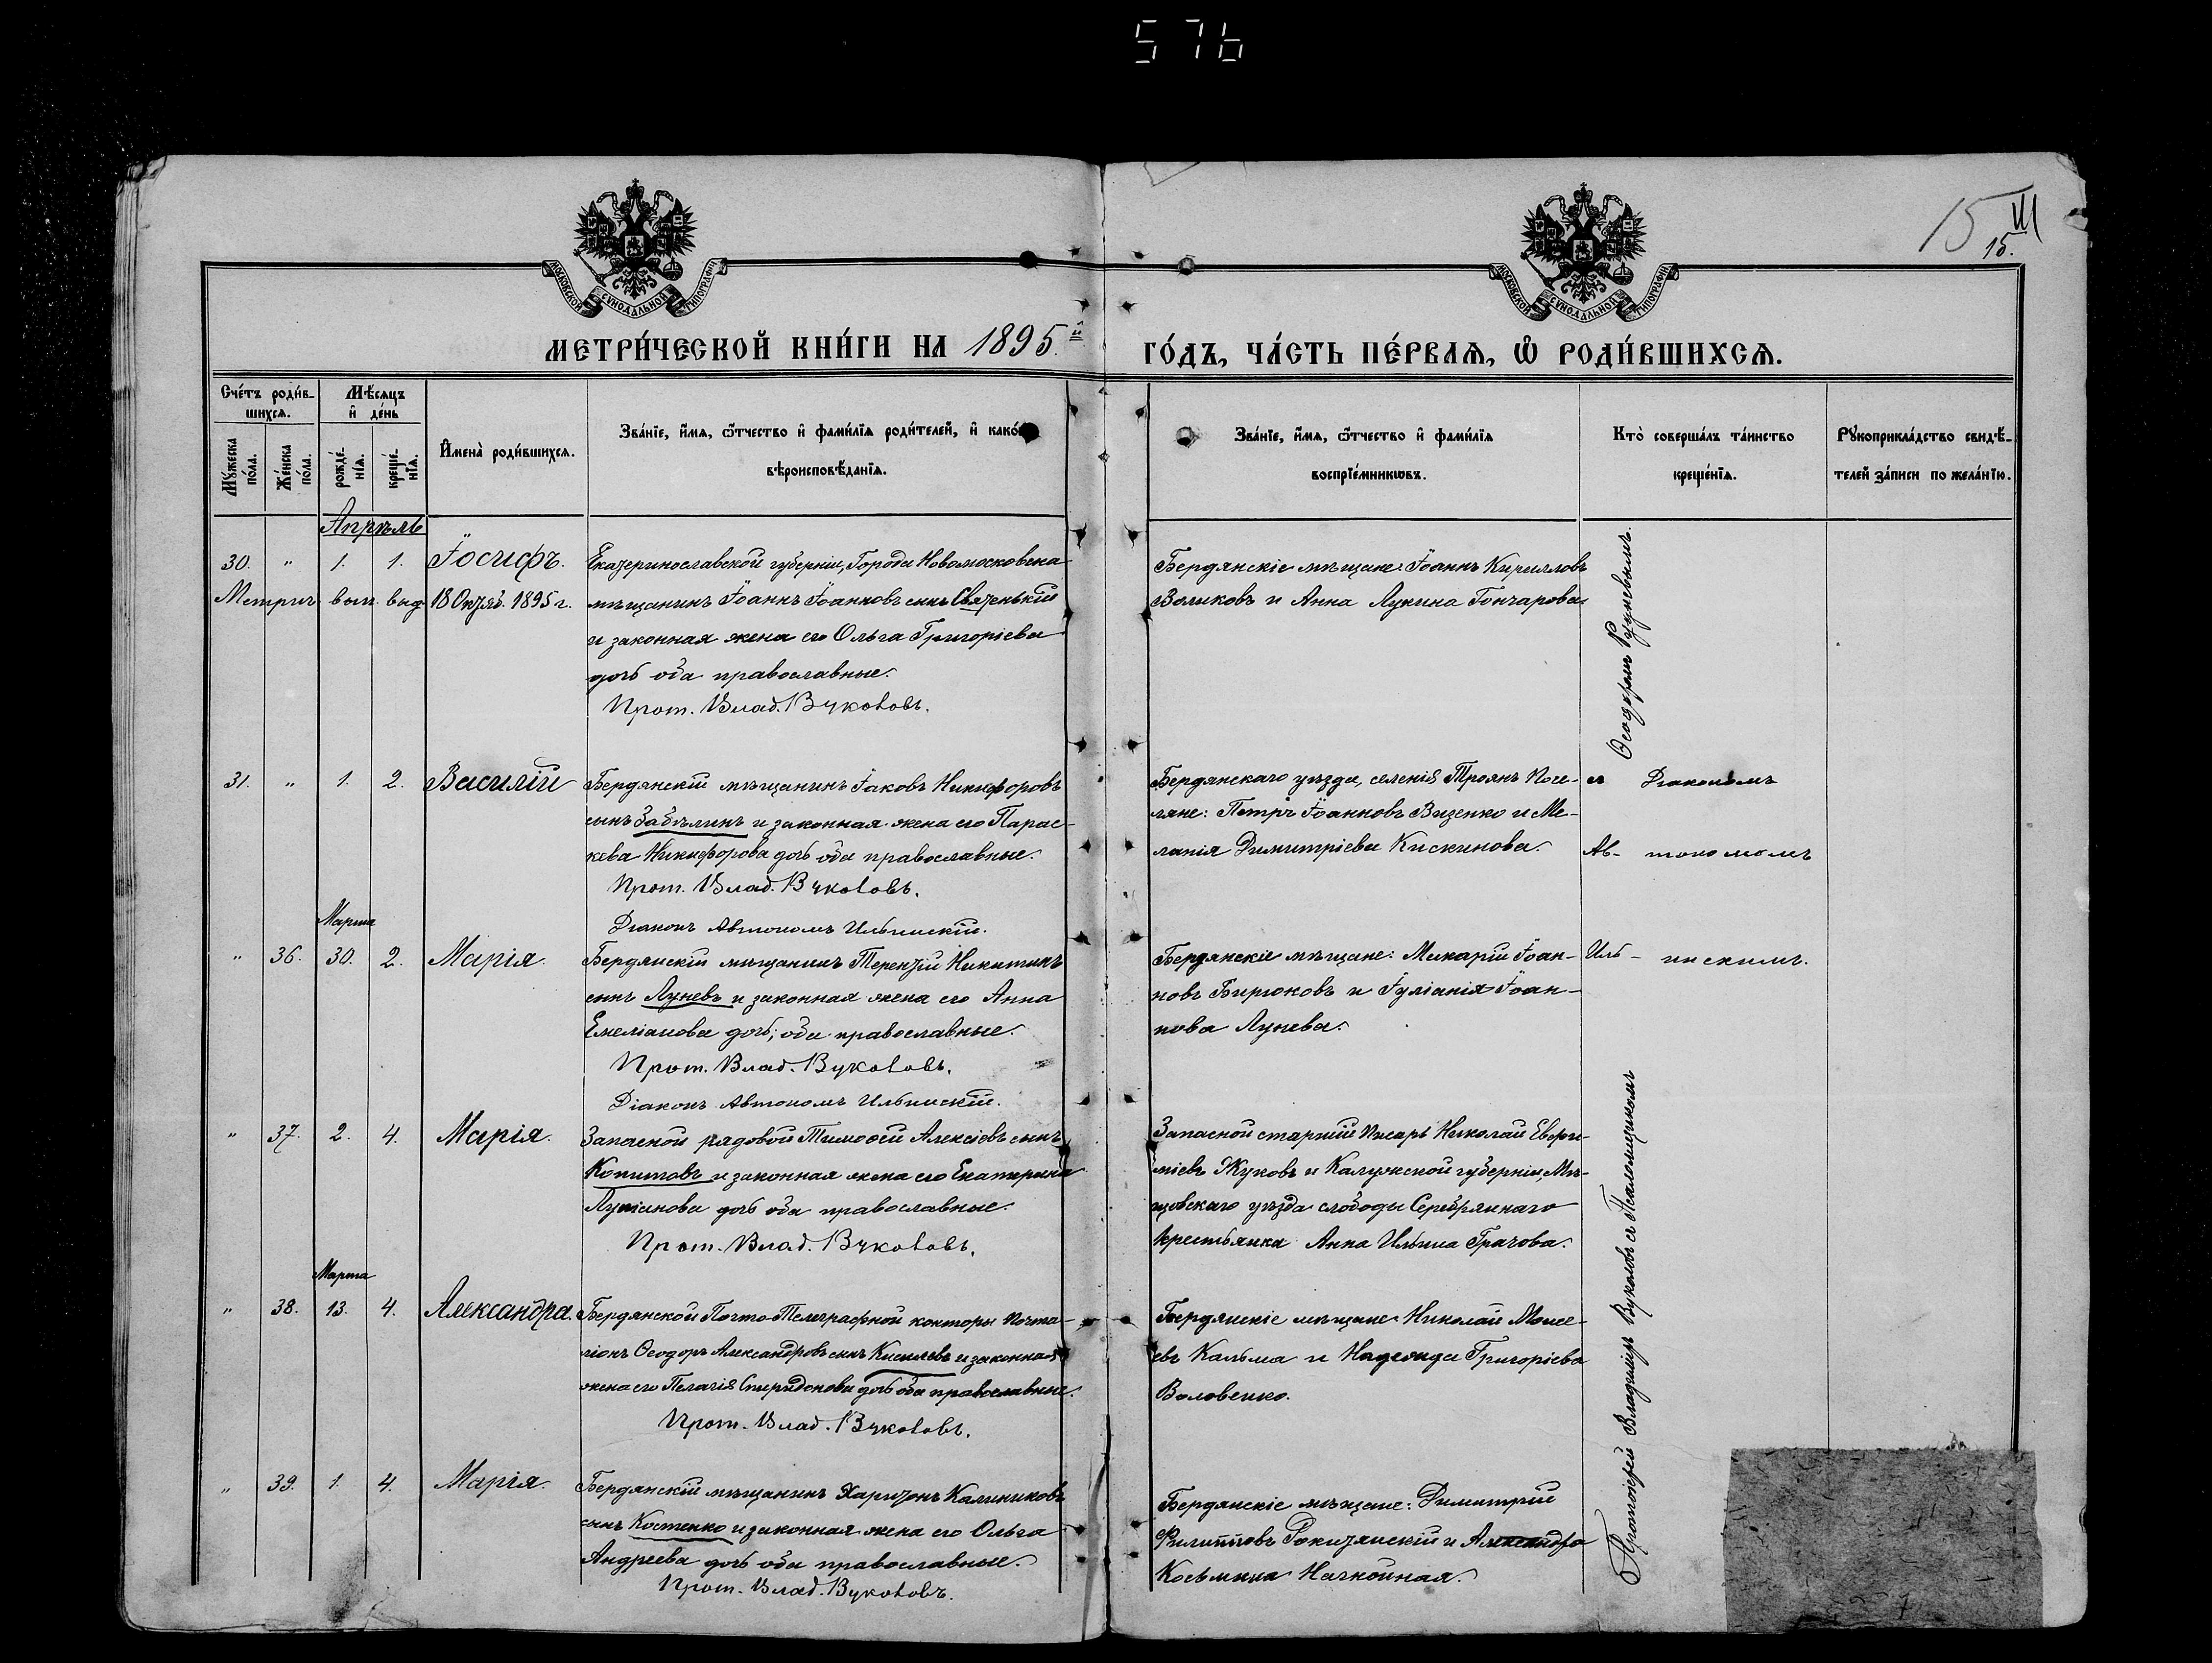 576
15
III
15.
МОСКОВСКОЙ СѴНОДАЛЬНОЙ ТИПОГРАФІИ
МОСКОВСКОЙ СѴНОДАЛЬНОЙ ТИПОГРАФІИ
МЕТРИ́ЧЕСКОЙ КНИ́ГИ НА 1895.й
ГО́ДЪ, ЧА́СТЬ ПЕ́РВАѦ, Ѿ РОДИ́ВШИХСѦ.
Сче́тъ роди́в-
шихсѧ.
Мѣ́сяцъ
и҆ де́нь
Мꙋ́жеска по́ла.
Же́нска по́ла.
рожде́-нїѧ.
креще́-нїѧ.
И҆мена̀ роди́вшихсѧ.
Зва́нїе, и҆́мѧ, ѻ҆́тчество и҆ фами́лїѧ роди́телей, и҆ како́
вѣроисповѣ́данїѧ.
Зва́нїе, и҆́мѧ, ѻ҆́тчество и҆ фами́лїѧ
воспрїе́мникѡвъ.
Кто̀ соверша́лъ та́инство
креще́нїѧ.
Рꙋкоприкла́дство свидѣ́-
телей за́писи по жела́нїю.
Апрѣль
30. " 1. 1. Іосифъ. Екатеринославской губерніи, Города Новомосковска
Метрич. вып. выд. 18 Октяб. 1895 г. мѣщанинъ Іоаннъ Іоанновъ сынъ Святенькій
и законная жена его Ольга Григоріева
дочь оба православные.
Прот. Влад. Вуколовъ.
Бердянскіе мѣщане: Іоаннъ Кирилловъ
Воликовъ и Анна Лукина Гончарова
31. " 1. 2. Василій Бердянскій мѣщанинъ Іаковъ Никифоровъ
сынъ Забѣлинъ и законная жена его Парас-
кева Никифорова дочь оба православные.
Прот. Влад. Вуколовъ.
Діаконъ Автономъ Ильинскій.
Бердянскаго уѣзда, селенія Троянъ Посе-
ляне: Петръ Іоанновъ Визенко и Ме-
ланія Димитріева Кискинова.
Марта
" 36. 30. 2. Марія. Бердянскій мѣщанинъ Терентій Никитинъ
сынъ Луневъ и законная жена его Анна
Емеліанова дочь; оба православные.
Прот. Влад. Вуколовъ.
Діаконъ Автономъ Ильинскій.
Бердянскіе мѣщане: Макарій Іоан-
новъ Бирюковъ и Іуліанія Іоан-
нова Лунева.
" 37. 2. 4. Марія. Запасной рядовой Тимоѳей Алексіевъ сынъ
Копитовъ и законная жена его Екатерина
Лукіанова дочь оба православные.
Прот. Влад. Вуколовъ.
Запасной старшій писарь Николай Евфи-
міевъ Жуковъ и Калужской губерніи, Мѣ-
щовскаго уѣзда слободы Серебрянаго
крестьянка Анна Ильина Грачова.
Марта
" 38. 13. 4. Александра. Бердянской Почто-Телеграфной конторы Почта-
ліонъ Ѳеодоръ Александровъ сынъ Киселевъ и законная
жена его Пелагія Спиридонова дочь оба православные.
Прот. Влад. Вуколовъ.
Бердянскіе мѣщане: Николай Моисе-
евъ Кальма и Надежда Григоріева
Воловенко.
" 39. 1. 4. Марія. Бердянскій мѣщанинъ Харитонъ Калиниковъ
сынъ Костенко и законная жена его Ольга
Андреева дочь оба православные.
Прот. Влад. Вуколовъ.
Бердянскіе мѣщане: Димитрій
Филипповъ Рокитянскій и Александра
Косьмина Начкойная.
Протоіерей Владиміръ Вуколовъ съ Псаломщикомъ
Ѳеодоромъ
съ Діакономъ
Ав- тономомъ
Иль- инскимъ.